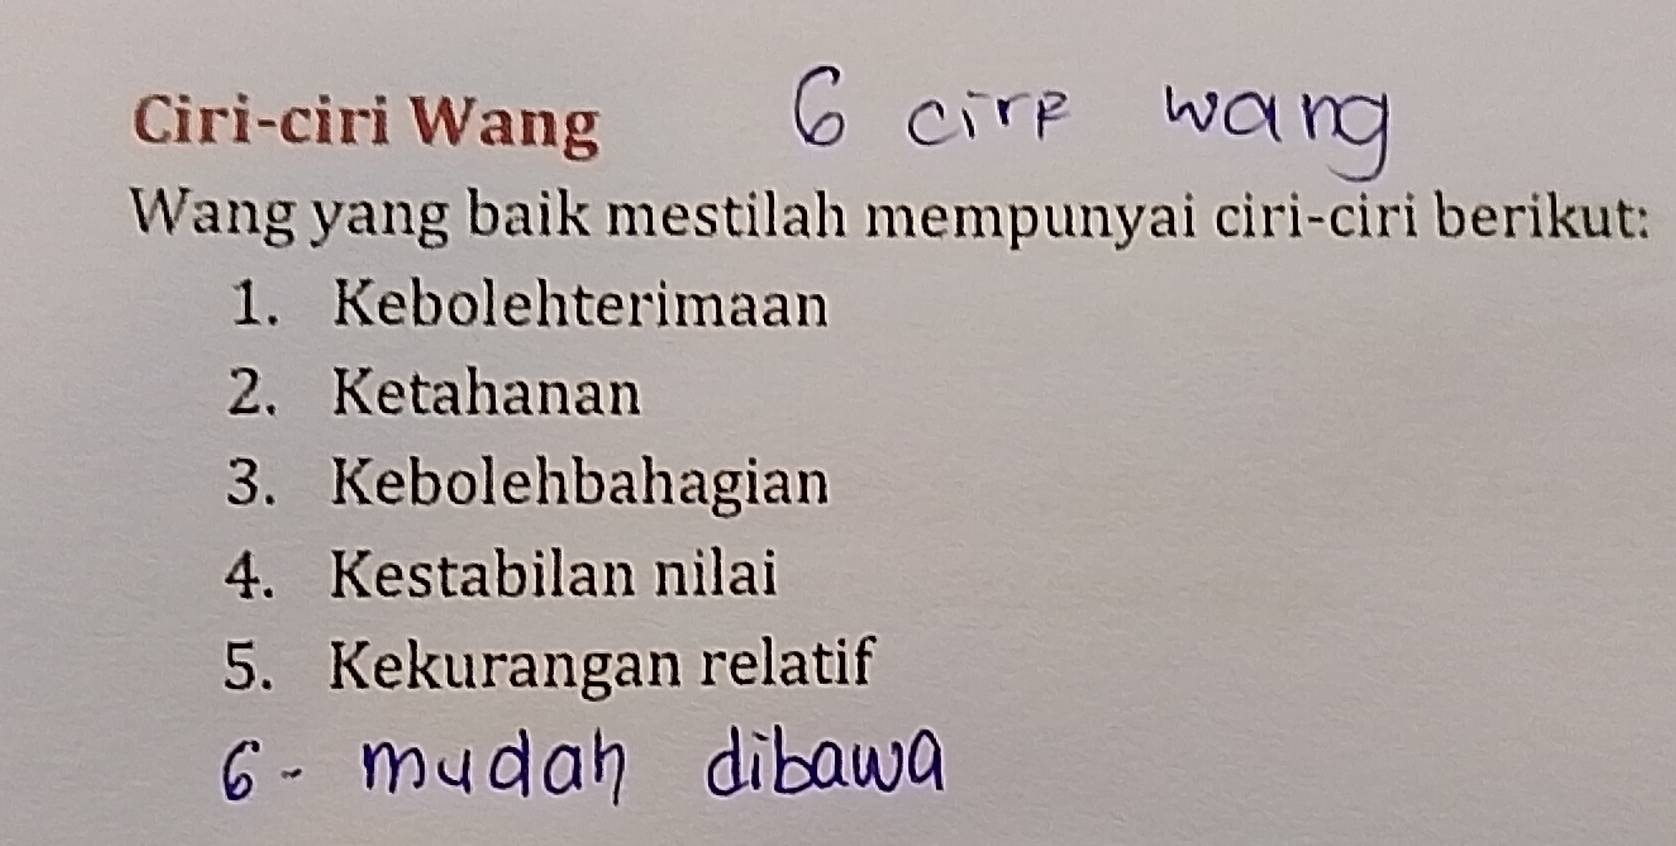 Ciri-ciri Wang 6 ciri wang
Wang yang baik mestilah mempunyai ciri-ciri berikut:
1. Kebolehterimaan
2. Ketahanan
3. Kebolehbahagian
4. Kestabilan nilai
5. Kekurangan relatif
6- mudah dibawa